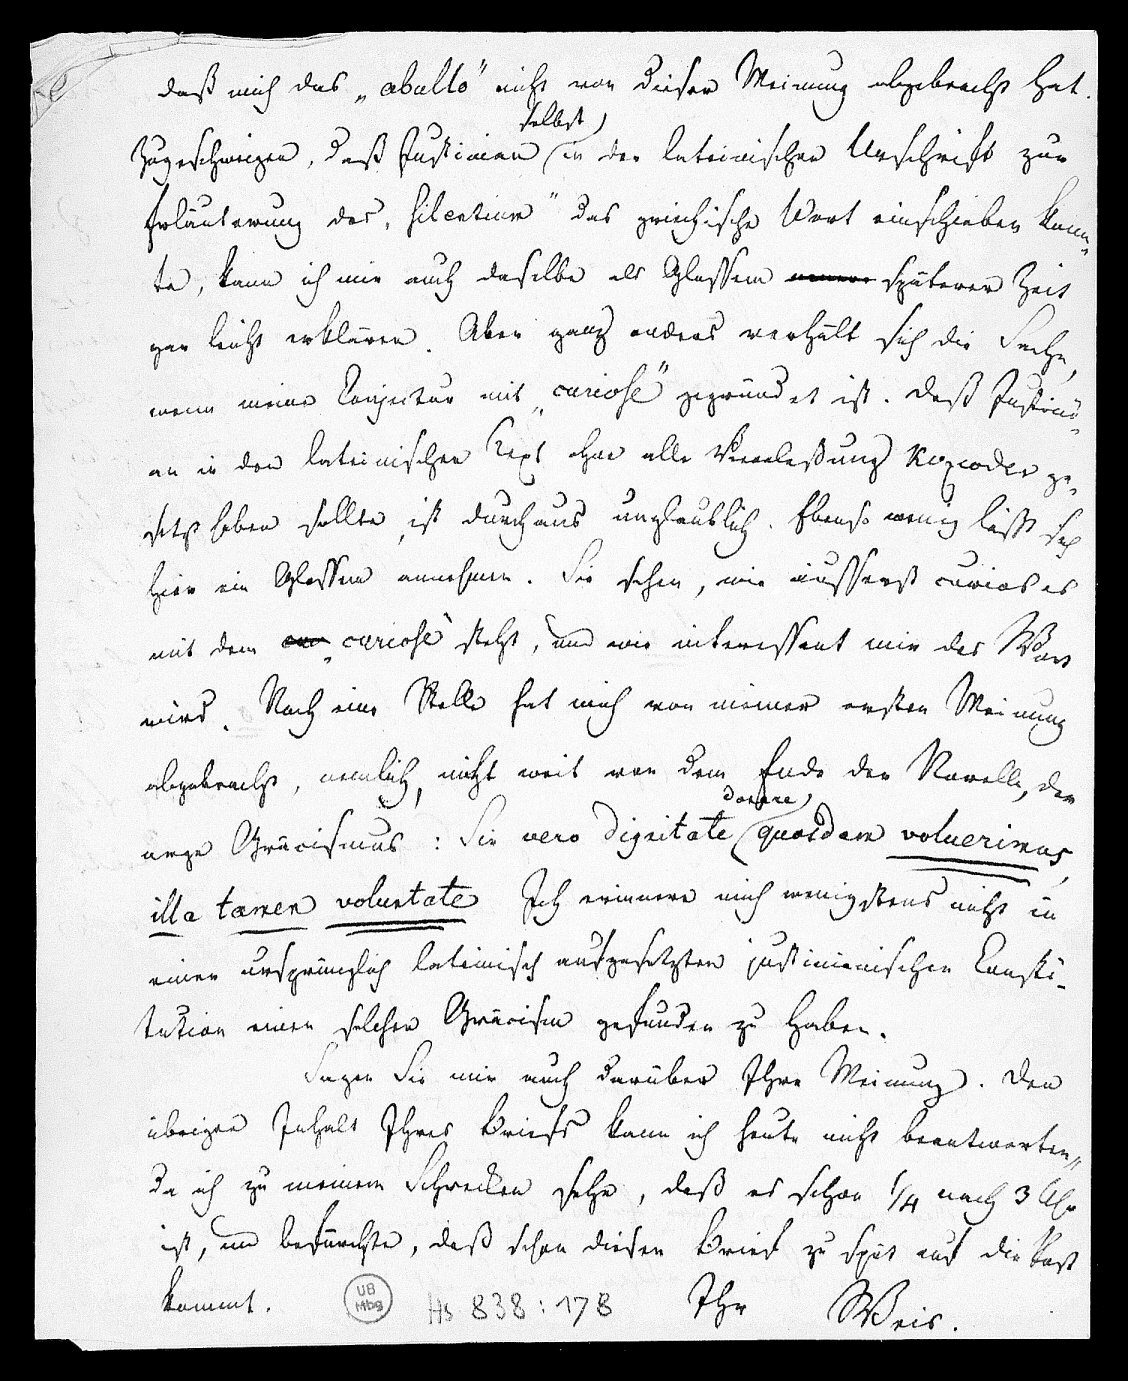 daß mich das „abullo" nicht von dieser Meinung abgebracht hat.
selbst
Zugeschweigen, daß Justinian in der lateinischen Urschrift zur
Erläuterung des „silentium" das griechische Wort einschieben konn-
te, kann ich mir auch daselbe als Glossem späterer Zeit
gar leicht erklären. Aber ganz anders verhält sich die Sache,
wenn meine Conjectur mit „curiose" gegründet ist. Daß Justini-
an in den lateinischen Text ohne alle Veranlaßung ge-
setzt haben sollte, ist durchaus unglaublich. Ebenso wenig läßt sich
hier ein Glossem annehmen. Sie sehen, wie äusserst curios es
mit dem „curiose" steht, und wie interessant mir das Wort
wird. Noch eine Stelle hat mich von meiner ersten Meinung
abgebracht, nemlich, nicht weit von dem Ende der Novelle, der
donare
arge Gräcismus: Sin vero dignitate quosdam voluerimus,
illa tamen voluntate Ich erinnere mich wenigstens nicht in
einer ursprünglich lateinisch aufgesetzten justinianischen Consti-
tution einen solchen Gräcism gefunden zu haben.
Sagen Sie mir auch darüber Ihre Meinung. Den
übrigen Inhalt Ihres Briefs kann ich heute nicht beantworten,
da ich zu meinem Schrecken sehe, daß es schon 1/4 nach 3 Uhr
ist, und befürchte, daß schon dieser Brief zu spät auf die Post
kommt. Ihr Weis.
UB
Mbg
Hs 838:178